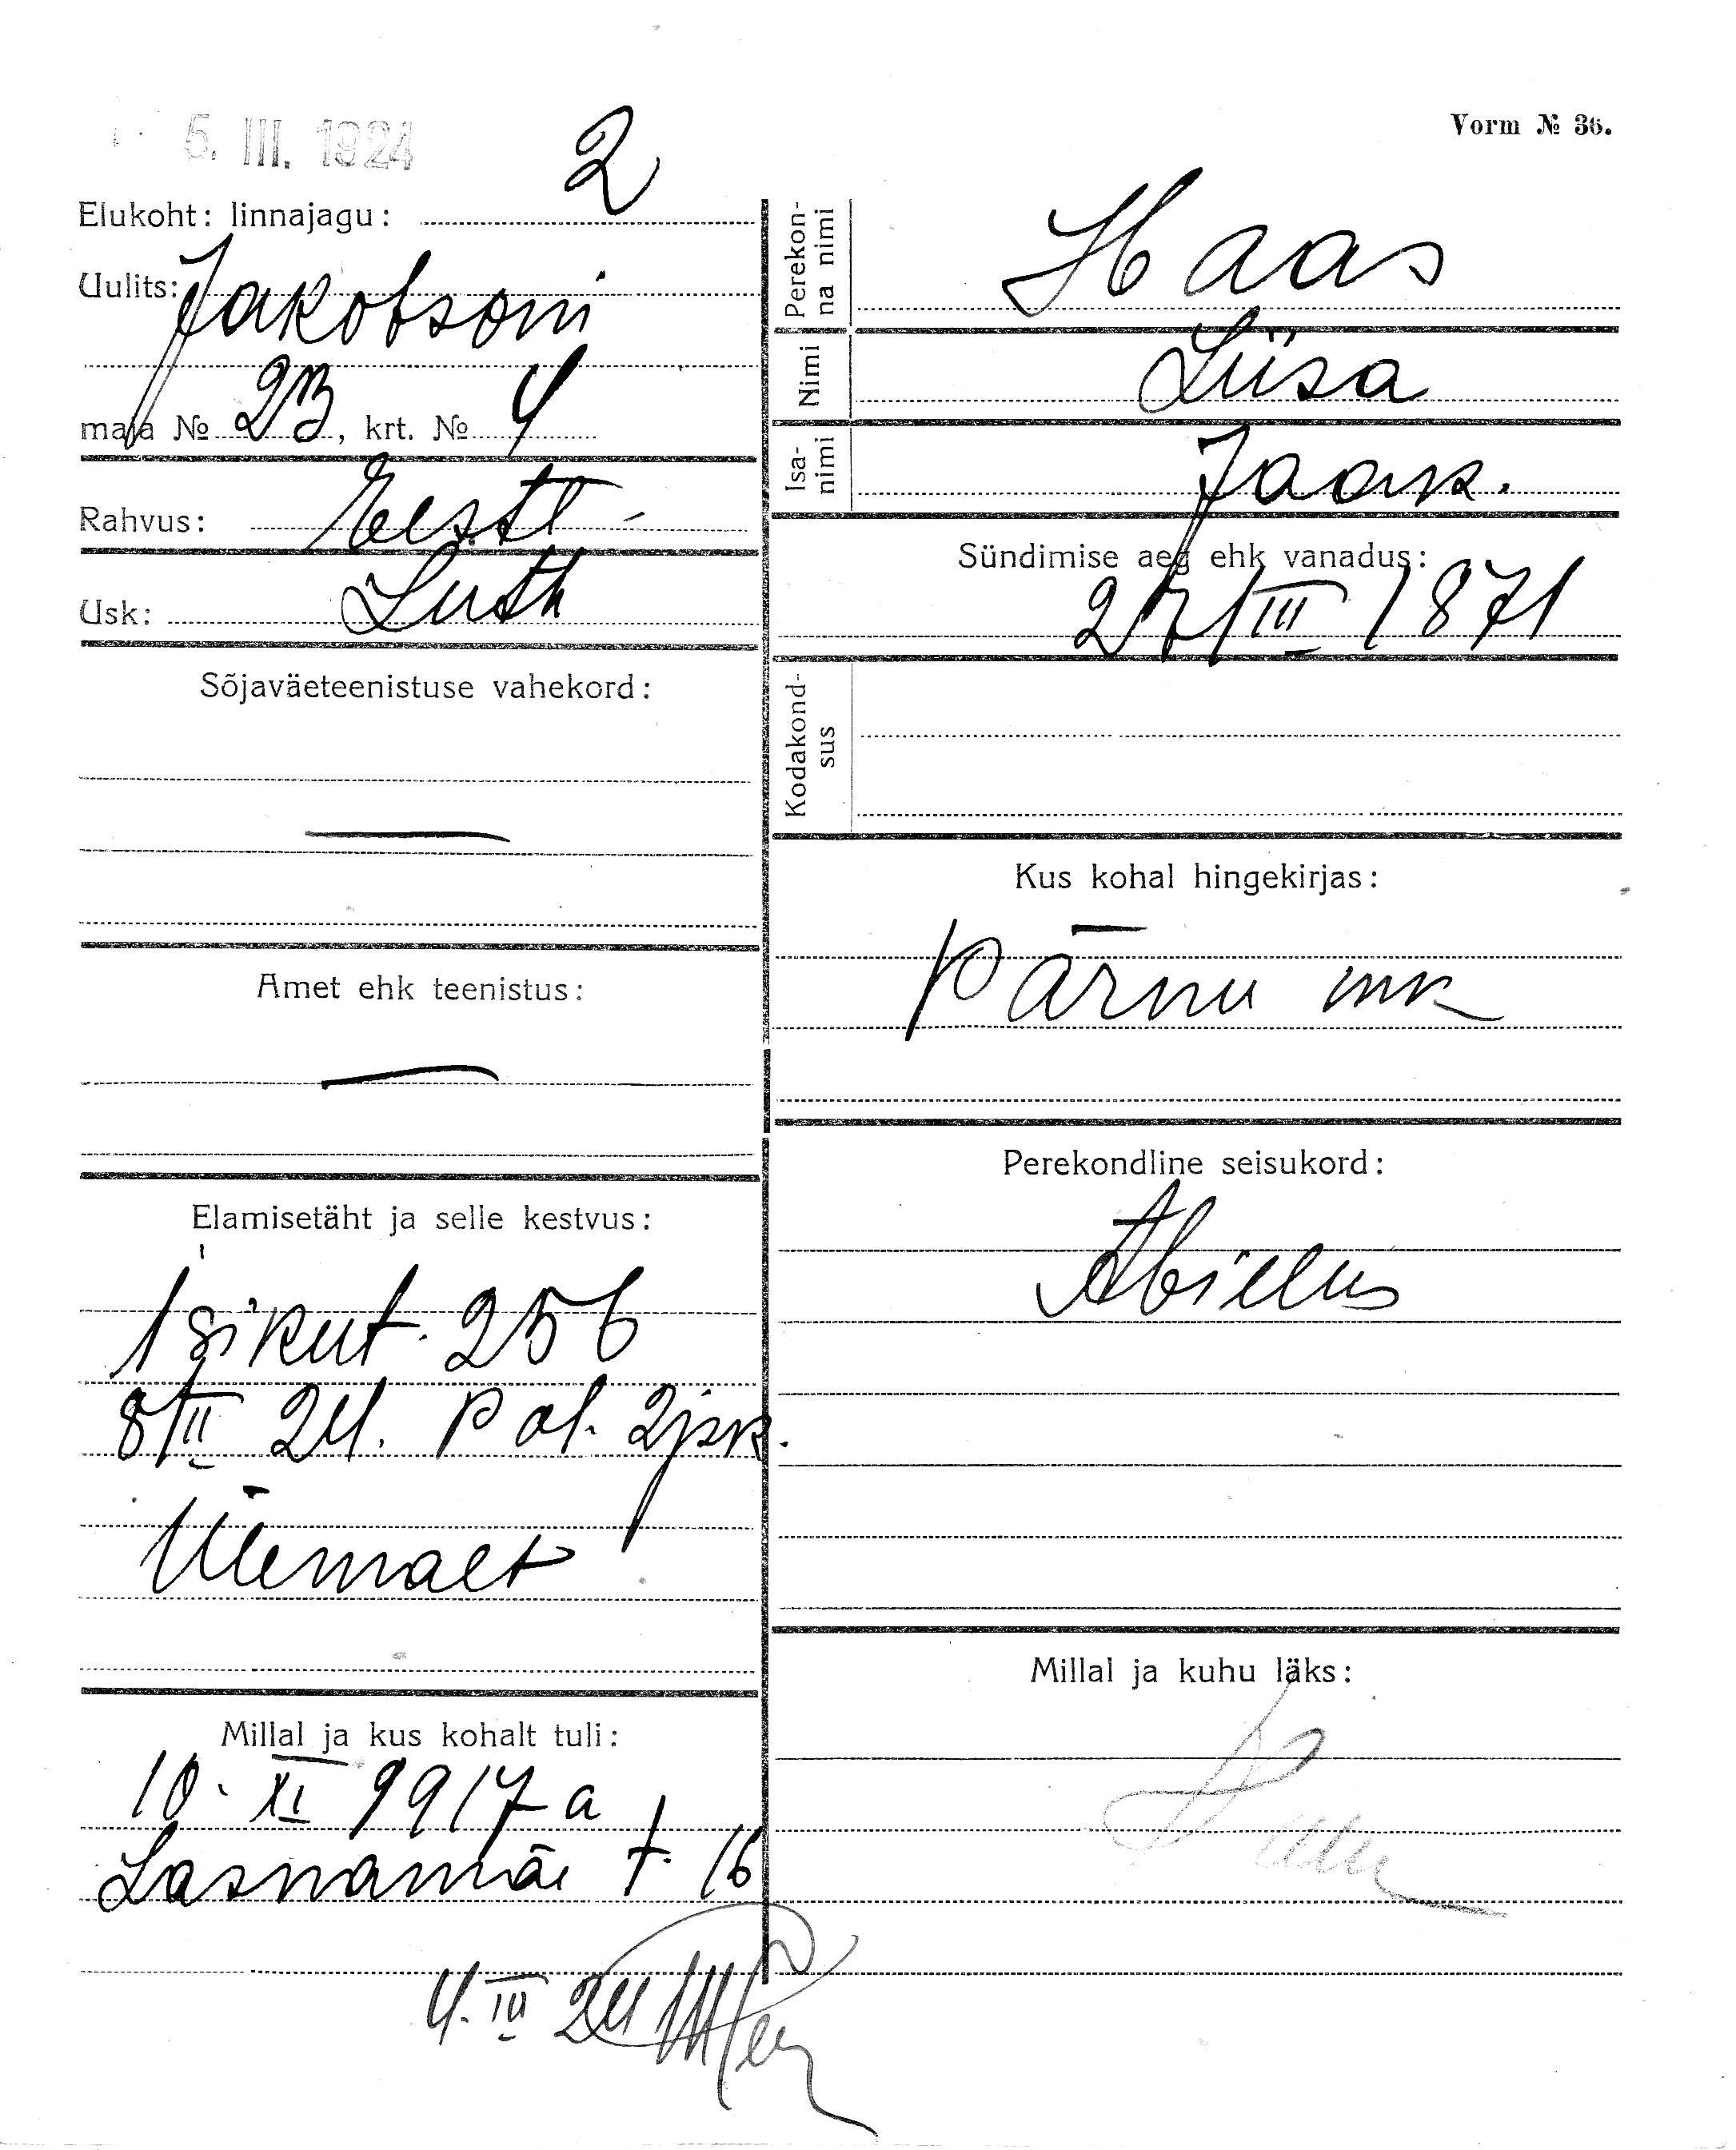 5. III. 1924
Vorm № 36.
Elukoht: linnajagu: 2
Uulits: Jakobsoni
maja № 23, krt. № 4
Rahvus: Eesti
Usk: Luth
Sõjaväeteenistuse vahekord:
—
Amet ehk teenistus:
—
Elamisetäht ja selle kestvus:
Isikut. 256
8/II 24. Pol. 2jsk.
Ülemalt
Millal ja kus kohalt tuli:
10. XI 1917 a
Lasnamäe t. 16
4. III 24
Perekonna nimi
Haas
Nimi
Liisa
Isanimi
Jaak.
Sündimise aeg ehk vanadus:
27/III 1871
Kodakondsus
Kus kohal hingekirjas:
Pärnu mk
Perekondline seisukord:
Abielus
Millal ja kuhu läks: